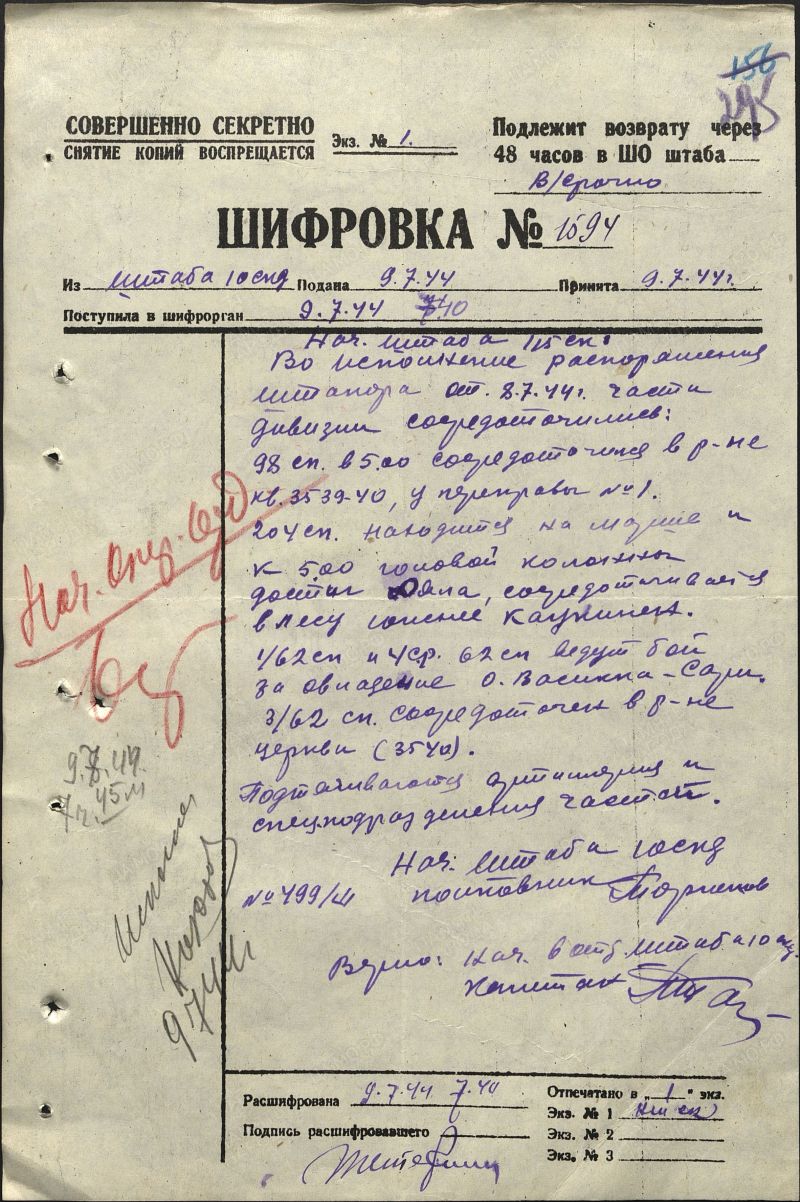 156
295
СОВЕРШЕННО СЕКРЕТНО
СНЯТИЕ КОПИЙ ВОСПРЕЩАЕТСЯ
Экз. № 1.
Подлежит возврату через
48 часов в ШО штаба
В/срочно
ШИФРОВКА № 1594
Из штаба 10 скд Подана 9.7.44 Принята 9.7.44г.
Поступила в шифрорган 9.7.44 740
Нач. штаба 115 ск:
Во исполнение распоряжения
штакора от 8.7.44г. части
дивизии сосредоточились:
98 сп. в 5.00 сосредоточился в р-не
кв. 3539-40, у переправы №1.
204 сп. находится на марше и
к 5.00 головой колонны
достиг, сосредотачивается
в лесу южнее
1/62 сп и 4 ср. 62 сп ведут бой
за овладение о. Васикка-Сари.
3/62 сп. сосредоточен в р-не
церкви (3540).
Подтягиваются артиллерия и
спецподразделения частей.
Нач. Штаба 10 скд
№ 499/ш полковник
Верно: Нач. 6 отд штаба 10 скд.
капитан
Нач. опер. отд
9.7.44.
7ч. 45м
97 44
Расшифрована 9.7.44 7.40
Подпись расшифровавшего
Отпечатано в „1" экз.
Экз. № 1
Экз. № 2
Экз. № 3